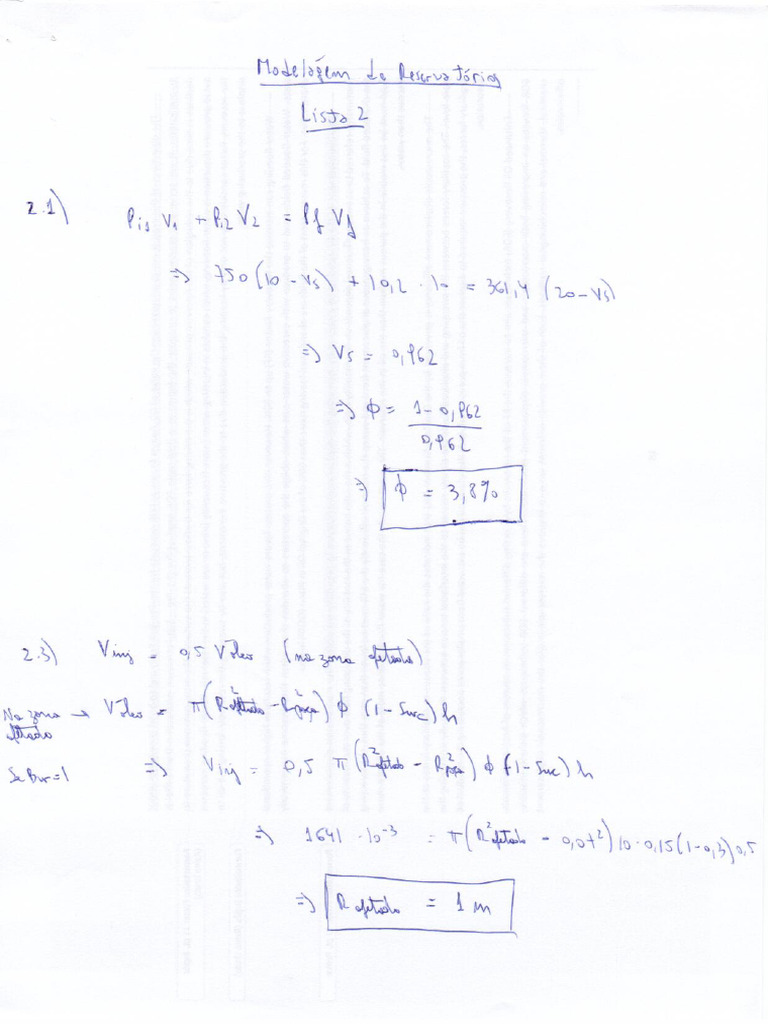 Modelagem de Reservatórios
Lista 2
2.1) Pi1 V1 + Pi2 V2 = Pf Vf
=> 750 (10 - Vs) + 10,2 · 10 = 361,4 (20 - Vs)
=> Vs = 0,962
=> φ = (1 - 0,962) / 0,962
=> φ = 3,8%
2.3) Vinj = 0,5 Vóleo (na zona afetada)
Na zona afetada → Vóleo = π(R²afetado - R²poço) φ (1 - Swc) h
Se Bw=1 => Vinj = 0,5 π(R²afetado - R²poço) φ (1 - Swc) h
=> 1641 · 10⁻³ = π(R²afetado - 0,07²) 10 · 0,15 (1 - 0,3) 0,5
=> Rafetado = 1 m